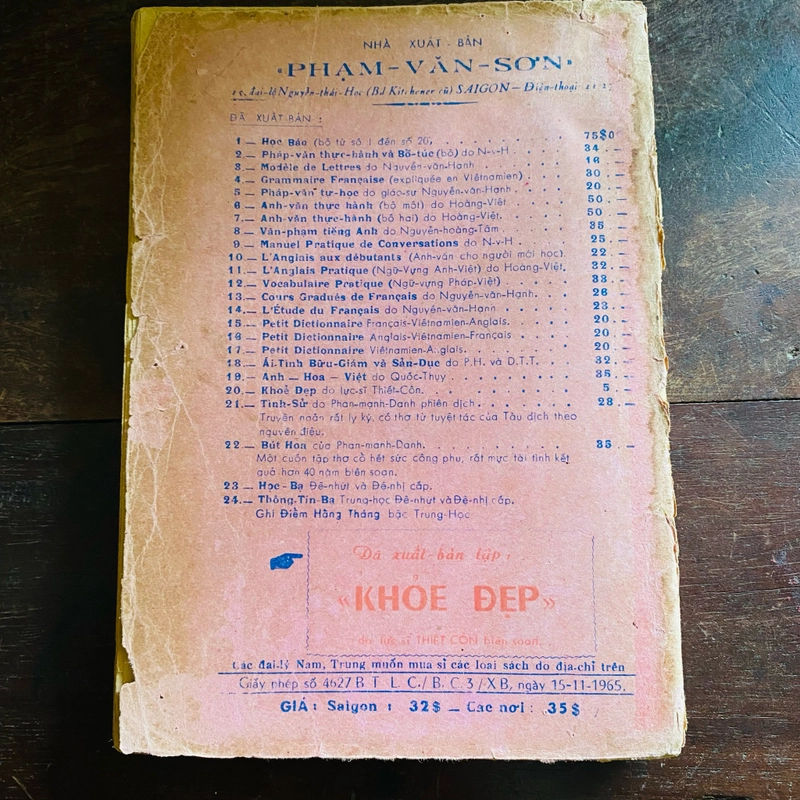 NHÀ XUẤT-BẢN
«PHẠM-VĂN-SƠN»
đại-lộ Nguyễn-thái-Học (Bd Kitchener cũ) SAIGON — Điện-thoại
ĐÃ XUẤT BẢN :
1 — Học Báo (bộ từ số 1 đến số 20) . . . . . . . 75$0
2 — Pháp-văn thực-hành và Bổ-túc (bộ) do N-v-H . . . 34 . —
3 — Modèle de Lettres do Nguyễn-văn-Hạnh . . . . 16
4 — Grammaire Française (expliquée en Viêtnamien) . . . 30 —
5 — Pháp-văn tự-học do giáo-sư Nguyễn-văn-Hạnh . . . 20
6 — Anh-văn thực hành (bộ một) do Hoàng-Việt . . . 50 —
7 — Anh-văn thực-hành (bộ hai) do Hoàng-Việt. . . . 50 . —
8 — Văn-phạm tiếng Anh do Nguyễn-hoàng-Tâm . . . 35 —
9 — Manuel Pratique de Conversations do N-v-H . . . 25 . —
10 — L'Anglais aux débutants (Anh-văn cho người mới học). 22 . —
11 — L'Anglais Pratique (Ngữ-Vựng Anh-Việt) do Hoàng-Việt. 32 . —
12 — Vocabulaire Pratique (Ngữ-vựng Pháp-Việt) . . . 33
13 — Cours Gradués de Français do Nguyễn-văn-Hạnh. . . 26 —
14 — L'Étude du Français do Nguyễn-văn-Hạnh . . . 23 . —
15 — Petit Dictionnaire Français-Viêtnamien-Anglais. . . . 20. —
16 — Petit Dictionnaire Anglais-Viêtnamien-Français . . . 20 —
17 — Petit Dictionnaire Viêtnamien-Anglais. . . . . 20 . —
18 — Ái-Tình Bửu-Giám và Sản-Dục do P.H. và D.T.T. . . 32. —
19 — Anh — Hoa — Việt do Quốc-Thụy . . . . . 35 —
20 — Khoẻ Đẹp do lực-sĩ Thiết-Côn. . . . . . 5 . —
21 — Tình-Sử do Phan-mạnh-Danh phiên dịch . . . . 28 —
Truyện ngắn rất ly kỳ, có thơ từ tuyệt tác của Tàu dịch theo
nguyên điệu.
22 — Bút Hoa của Phan-mạnh-Danh. . . . . . . 35 . —
Một cuốn tập thơ cổ hết sức công phu, rất mực tài tình kết
quả hơn 40 năm biên soạn.
23 — Học-Bạ Đệ-nhứt và Đệ-nhị cấp.
24 — Thông-Tín-Bạ Trung-học Đệ-nhứt và Đệ-nhị cấp.
Ghi Điểm Hằng Tháng bậc Trung-Học
Đã xuất-bản tập :
«KHỎE ĐẸP»
do lực-sĩ THIẾT CÔN biên soạn.
Các đại-lý Nam, Trung muốn mua sỉ các loại sách do địa-chỉ trên
Giấy phép số 4627 B T L C./ B. C. 3 / X B, ngày 15-11-1965.
GIÁ : Saigon : 32$ — Các nơi : 35$